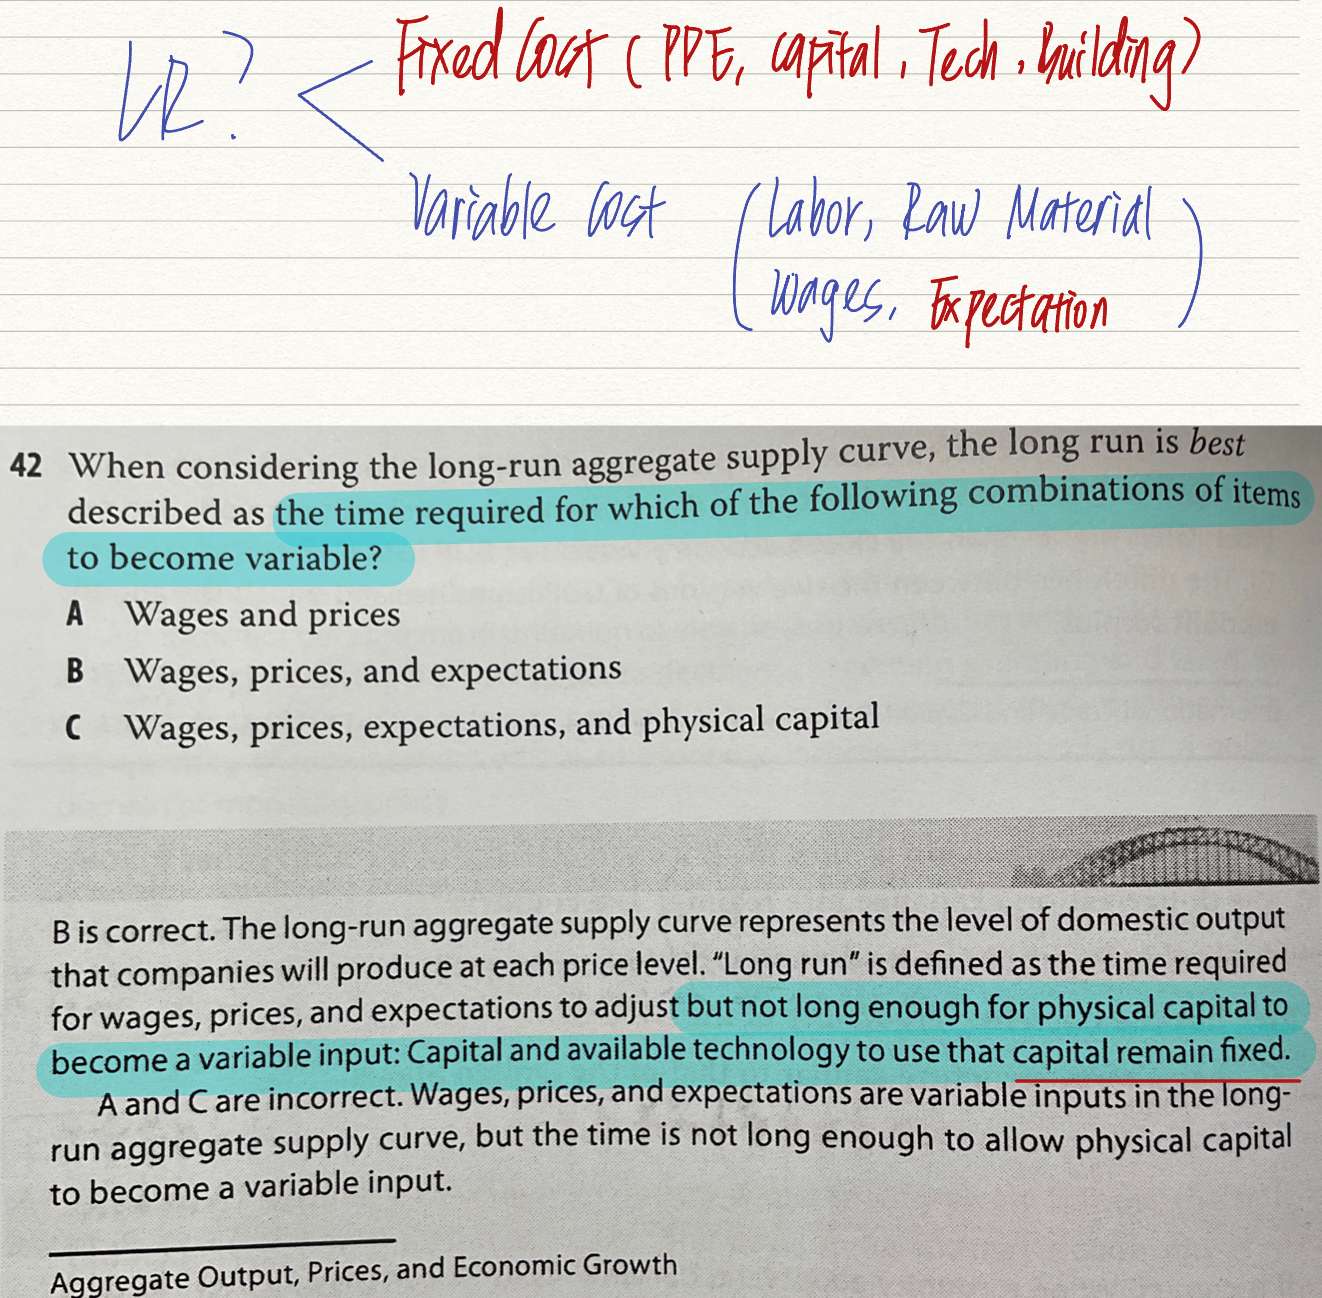 LR? < Fixed Cost ( PPE, capital, Tech, Building)
Variable Cost (Labor, Raw Material
Wages, Expectation)
42 When considering the long-run aggregate supply curve, the long run is best
described as the time required for which of the following combinations of items
to become variable?
A Wages and prices
B Wages, prices, and expectations
C Wages, prices, expectations, and physical capital
B is correct. The long-run aggregate supply curve represents the level of domestic output
that companies will produce at each price level. “Long run” is defined as the time required
for wages, prices, and expectations to adjust but not long enough for physical capital to
become a variable input: Capital and available technology to use that capital remain fixed.
A and C are incorrect. Wages, prices, and expectations are variable inputs in the long-
run aggregate supply curve, but the time is not long enough to allow physical capital
to become a variable input.
Aggregate Output, Prices, and Economic Growth